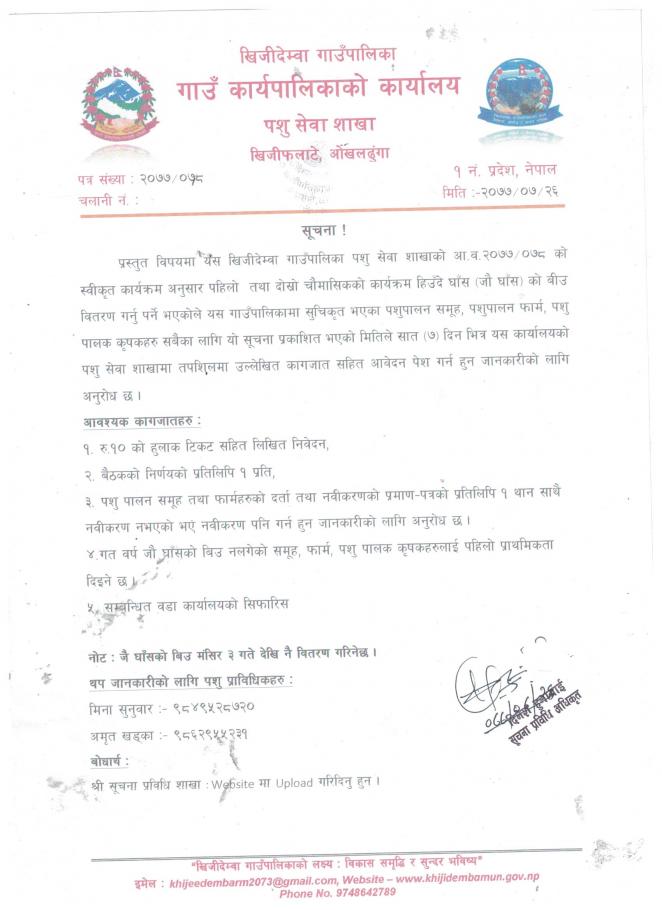 खिजीदेम्बा गाउँपालिका
गाउँ कार्यपालिकाको कार्यालय
पशु सेवा शाखा
खिजीफलाटे, ओखलढुंगा
१ नं. प्रदेश, नेपाल
पत्र संख्या : २०७७/०७८
मिति :-२०७७/०७/२६
चलानी नं. :
सूचना !
प्रस्तुत विषयमा यस खिजीदेम्बा गाउँपालिका पशु सेवा शाखाको आ.व.२०७७/०७८ को
स्वीकृत कार्यक्रम अनुसार पहिलो तथा दोस्रो चौमासिकको कार्यक्रम हिउँदे घाँस (जौ घाँस) को बीउ
वितरण गर्नु पर्ने भएकोले यस गाउँपालिकामा सुचिकृत भएका पशुपालन समूह, पशुपालन फार्म, पशु
पालक कृषकहरु सबैका लागि यो सूचना प्रकाशित भएको मितिले सात (७) दिन भित्र यस कार्यालयको
पशु सेवा शाखामा तपशिलमा उल्लेखित कागजात सहित आवेदन पेश गर्न हुन जानकारीको लागि
अनुरोध छ ।
आवश्यक कागजातहरु :
१. रु.१० को हुलाक टिकट सहित लिखित निवेदन,
२. बैठकको निर्णयको प्रतिलिपि १ प्रति,
३. पशु पालन समूह तथा फार्महरुको दर्ता तथा नवीकरणको प्रमाण-पत्रको प्रतिलिपि १ थान साथै
नवीकरण नभएको भए नवीकरण पनि गर्न हुन जानकारीको लागि अनुरोध छ ।
४.गत वर्ष जौ घाँसको बिउ नलगेको समूह, फार्म, पशु पालक कृषकहरुलाई पहिलो प्राथमिकता
दिइने छ ।
५. सम्बन्धित वडा कार्यालयको सिफारिस
नोट : जै घाँसको बिउ मंसिर ३ गते देखि नै वितरण गरिनेछ ।
थप जानकारीको लागि पशु प्राविधिकहरु :
मिना सुनुवार :- ९८४९५२८७२०
अमृत खड्का :- ९८६२९५५२३१
सूचना प्रविधि अधिकृत
बोधार्थ :
श्री सूचना प्रविधि शाखा : Website मा Upload गरिदिनु हुन ।
"खिजीदेम्बा गाउँपालिकाको लक्ष्य : विकास समृद्धि र सुन्दर भविष्य"
इमेल : khijeedembarm2073@gmail.com, Website – www.khijidembamun.gov.np
Phone No. 9748642789